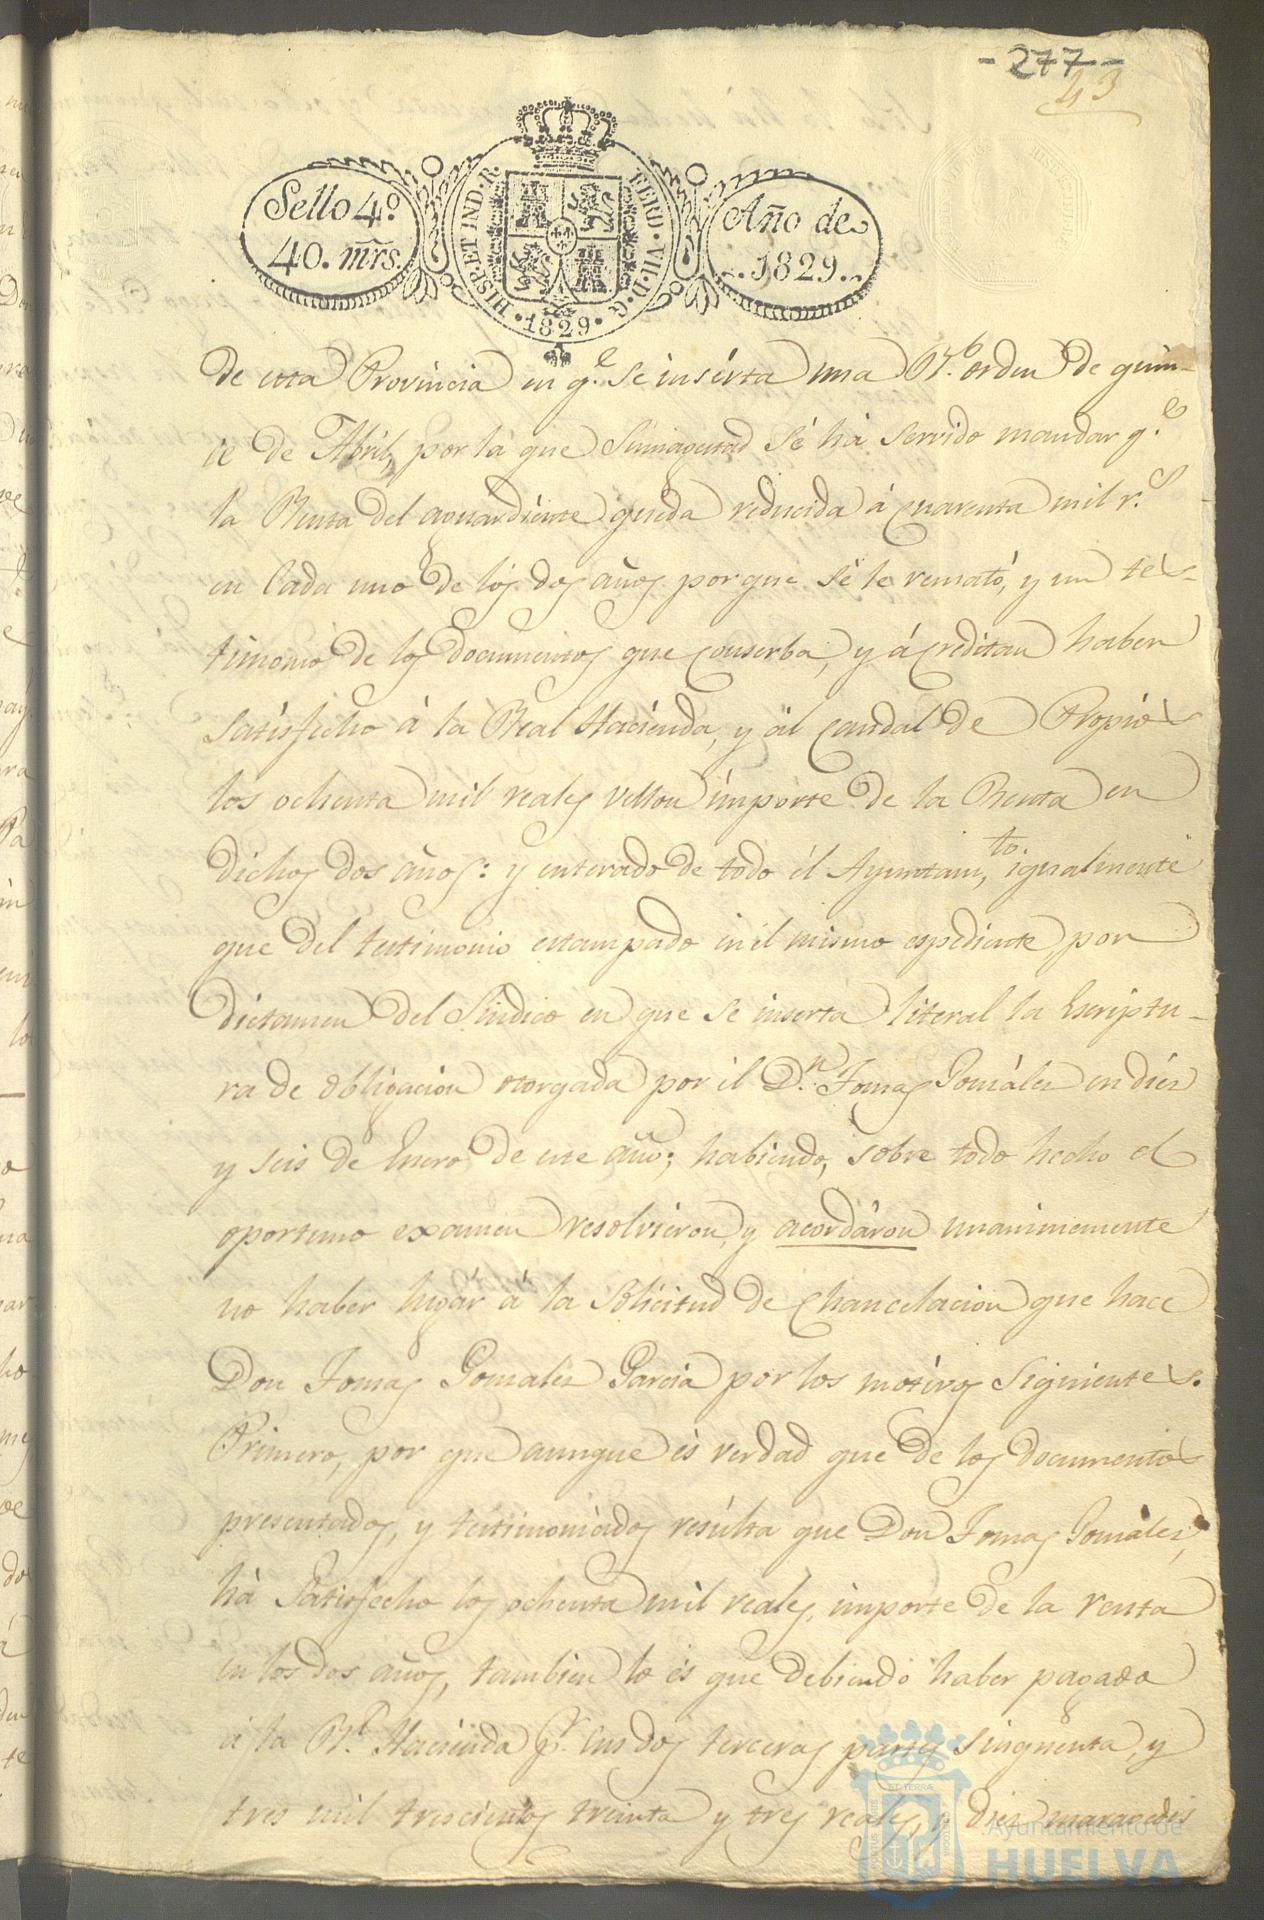 -277-
43
Sello 4º
40. mrs.
HISP. ET IND. R.
FERD. VII. D. G.
1829
Año de
1829.
de esta Provincia en q.e se insérta una R.l orden de quin-
ce de Abril, por la que Sumagestad sé há servido mandar q.e
la Renta del aguardiente queda reducida á cuarenta mil r.s
en Cada uno de los dos años porque sé le remató, y un tes-
timonio de los documentos que conserba, y ácreditan haber
satisfecho á la Real Hacienda, y ál caudal de Propios
los ochenta mil reales vellon importe de la Renta en
dichos dos años: y enterado de todo él Ayuntam.to, igualmente
que del testimonio estampado en el mismo espediente, por
dictamen del Sindico en que se inserta literal la Escriptu-
ra de obligacion otorgada por él D.n Tomas Gonzáles en diéz
y seis de Enero de este año; habiendo, sobre todo hecho el
oportuno examen resolviéron, y acordáron unanimemente
no haber lugár á la solicitud de Chancelacion que hace
Don Tomas Gonzalez Garcia por los motivos siguientes.
Primero, por que aunque és verdad que de los documentos
presentados, y testimoniados resulta que Don Tomas Gonzalez,
há satisfecho los ochenta mil reales, importe de la renta
en los dos años, tambien lo és que debiendo haber pagado
á la R.l Hacienda p.r las dos terceras partes sinquenta, y
tres mil trescientos treinta y tres reales, y diez maravedis
Ayuntamiento de
HUELVA